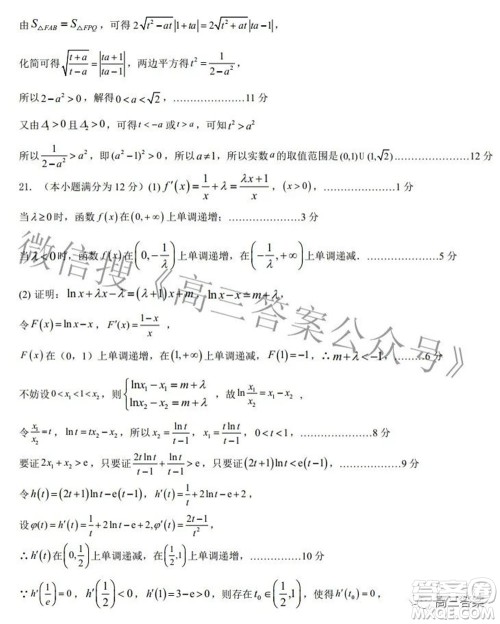 由 S△FAB = S△FPQ，可得 2√(t²−at)|1+ta| = 2√(t²+at)|ta−1|，
化简可得 √((t+a)/(t−a)) = |(ta+1)/(ta−1)|，两边平方得 t² = 1/(2−a²)，
所以 2−a²>0，解得 0<a<√2，………………11 分
又由 Δ₁>0 且 Δ₂>0，可得 t<−a 或 t>a，可知 t²>a²
所以 1/(2−a²) > a，即 (a²−1)²>0，所以 a≠1，所以实数 a 的取值范围是 (0,1)∪(1,√2)…………………12 分
21．（本小题满分为 12 分）(1) f′(x) = 1/x + λ = (λx+1)/x，(x>0)，………………1 分
当 λ≥0 时，函数 f(x) 在 (0,+∞) 上单调递增；………………3 分
当 λ<0 时，函数 f(x) 在 (0,−1/λ) 上单调递增，在 (−1/λ,+∞) 上单调递减．………………5 分
(2) 证明：lnx+λx−λ=(λ+1)x+m，lnx−x=m+λ
令 F(x)=lnx−x，F′(x)=(1−x)/x ，
F(x) 在（0，1）上单调递增，在 (1,+∞) 上单调递减，F(1)=−1，∴m+λ<−1，………6 分
不妨设 0<x₁<1<x₂，则 {lnx₁−x₁=m+λ, lnx₂−x₂=m+λ ，故 ln(x₁/x₂)=x₁−x₂，
令 x₁/x₂=t，lnt=tx₂−x₂，所以 x₂=lnt/(t−1)，x₁=tlnt/(t−1)，0<t<1，………………8 分
要证 2x₁+x₂>e，只要证 2tlnt/(t−1)+lnt/(t−1)>e，只要证 (2t+1)lnt<e(t−1)，………………9 分
令 h(t)=(2t+1)lnt−e(t−1)，h′(t)=1/t+2lnt−e+2，
设 φ(t)=h′(t)=1/t+2lnt−e+2,φ′(t)=(2t−1)/t²，
∴h′(t) 在 (0,1/2) 上单调递减，在 (1/2,1) 上单调递增，………………10 分
∵h′(1/e)=0，h′(1/2)<0，h′(1)=3−e>0，则存在 t₀∈(1/2,1)，使得 h′(t₀)=0，
微信搜《高三答案公众号》
高三答案